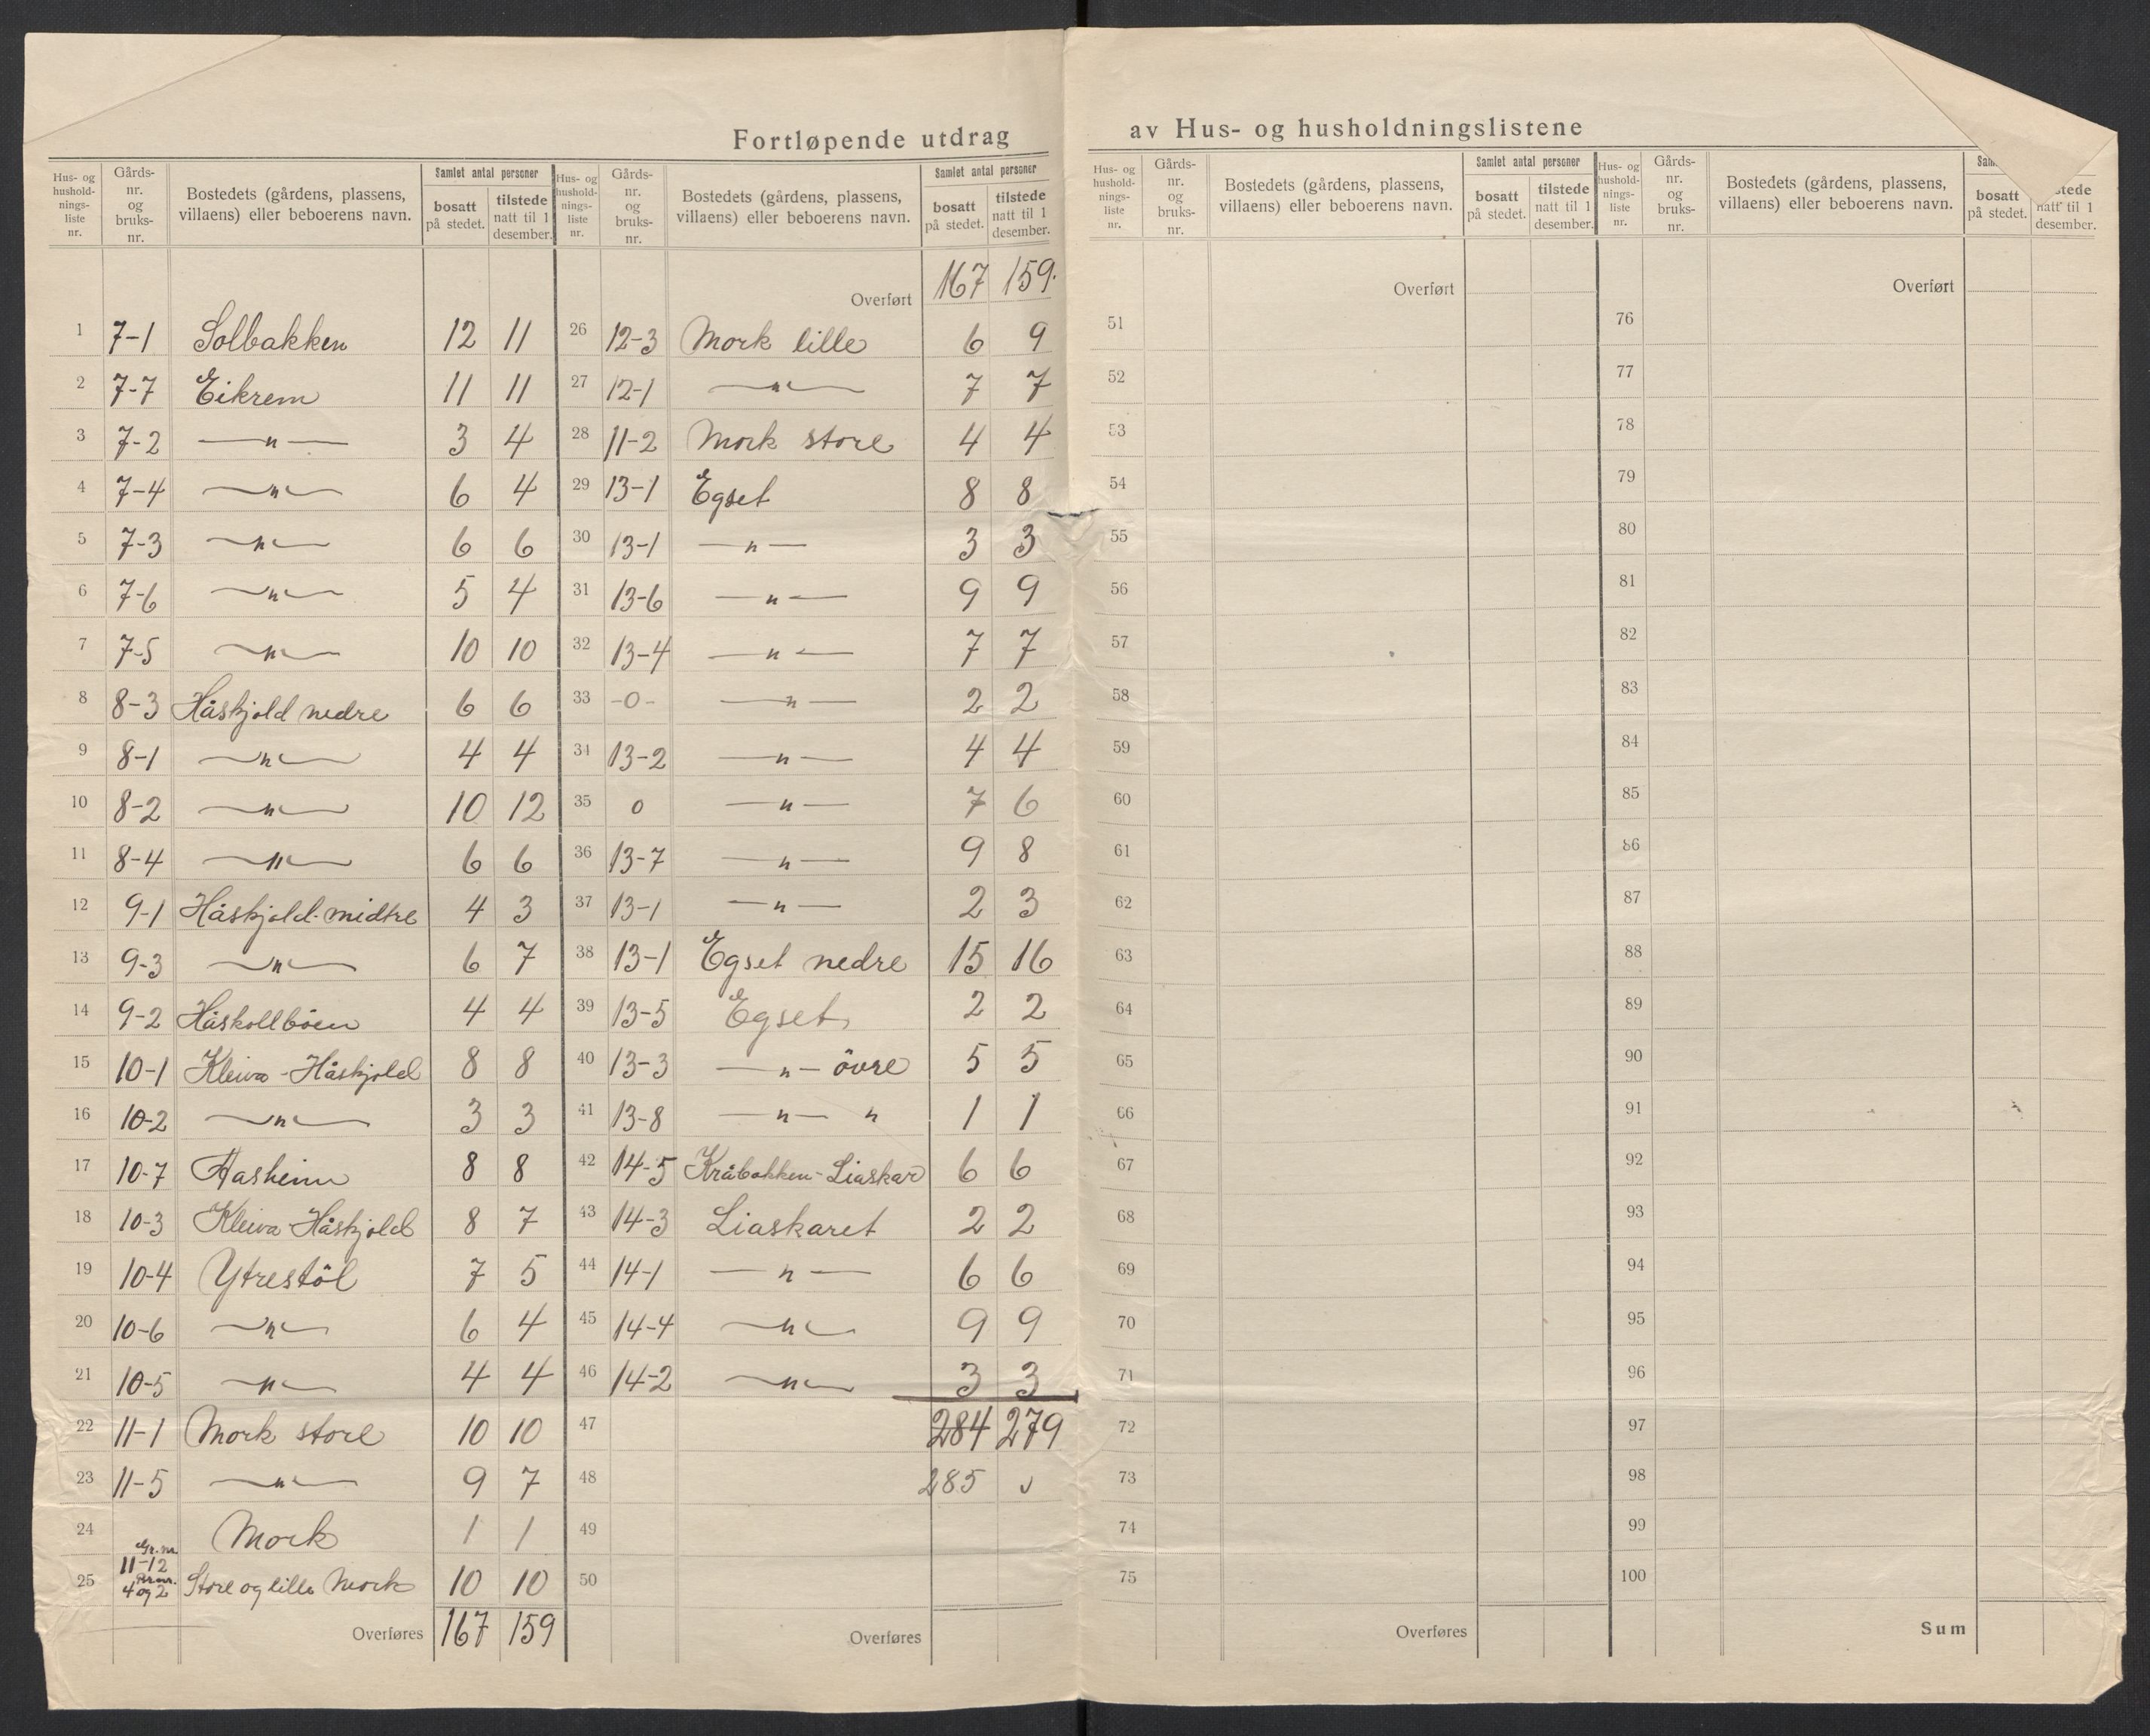 Fortløpende utdrag av Hus- og husholdningslistene
Hus- og hushold-nings-liste nr. | Gårds-nr. og bruks-nr. | Bostedets (gårdens, plassens, villaens) eller beboerens navn. | Samlet antal personer | bosatt på stedet. | tilstede natt til 1 desember.
1 7-1 Solbakken 12 11
2 7-7 Eikrem 11 11
3 7-2 —"— 3 4
4 7-4 —"— 6 4
5 7-3 —"— 6 6
6 7-6 —"— 5 4
7 7-5 —"— 10 10
8 8-3 Håskjold nedre 6 6
9 8-1 —"— 4 4
10 8-2 —"— 10 12
11 8-4 —"— 6 6
12 9-1 Håskjold-midtre 4 3
13 9-3 —"— 6 7
14 9-2 Håskollböen 4 4
15 10-1 Kleiva-Håskjold 8 8
16 10-2 —"— 3 3
17 10-7 Aasheim 8 8
18 10-3 Kleiva Håskjold 8 7
19 10-4 Ytrestöl 7 5
20 10-6 —"— 6 4
21 10-5 —"— 4 4
22 11-1 Mork store 10 10
23 11-5 —"— 9 7
24 Mork 1 1
25 Gr. nr. 11-12 Br.nr. 4 og 2 Store og lille Mork 10 10
Overføres 167 159
Hus- og hushold-nings-liste nr. | Gårds-nr. og bruks-nr. | Bostedets (gårdens, plassens, villaens) eller beboerens navn. | Samlet antal personer | bosatt på stedet. | tilstede natt til 1 desember.
Overført 167 159.
26 12-3 Mork lille 6 9
27 12-1 —"— 7 7
28 11-2 Mork store 4 4
29 13-1 Egset 8 8
30 13-1 —"— 3 3
31 13-6 —"— 9 9
32 13-4 —"— 7 7
33 -0- —"— 2 2
34 13-2 —"— 4 4
35 0 —"— 7 6
36 13-7 —"— 9 8
37 13-1 —"— 2 3
38 13-1 Egset nedre 15 16
39 13-5 Egset 2 2
40 13-3 —"— övre 5 5
41 13-8 —"— " 1 1
42 14-5 Kråbakken-Liaskar 6 6
43 14-3 Liaskaret 2 2
44 14-1 —"— 6 6
45 14-4 —"— 9 9
46 14-2 —"— 3 3
47 284 279
48 285 v
49
50
Overføres
Hus- og hushold-nings-liste nr. | Gårds-nr. og bruks-nr. | Bostedets (gårdens, plassens, villaens) eller beboerens navn. | Samlet antal personer | bosatt på stedet. | tilstede natt til 1 desember.
Overført
51
52
53
54
55
56
57
58
59
60
61
62
63
64
65
66
67
68
69
70
71
72
73
74
75
Overføres
Hus- og hushold-nings-liste nr. | Gårds-nr. og bruks-nr. | Bostedets (gårdens, plassens, villaens) eller beboerens navn. | bosatt på stedet. | stede natt til 1 desember.
Overført
76
77
78
79
80
81
82
83
84
85
86
87
88
89
90
91
92
93
94
95
96
97
98
99
100
Sum